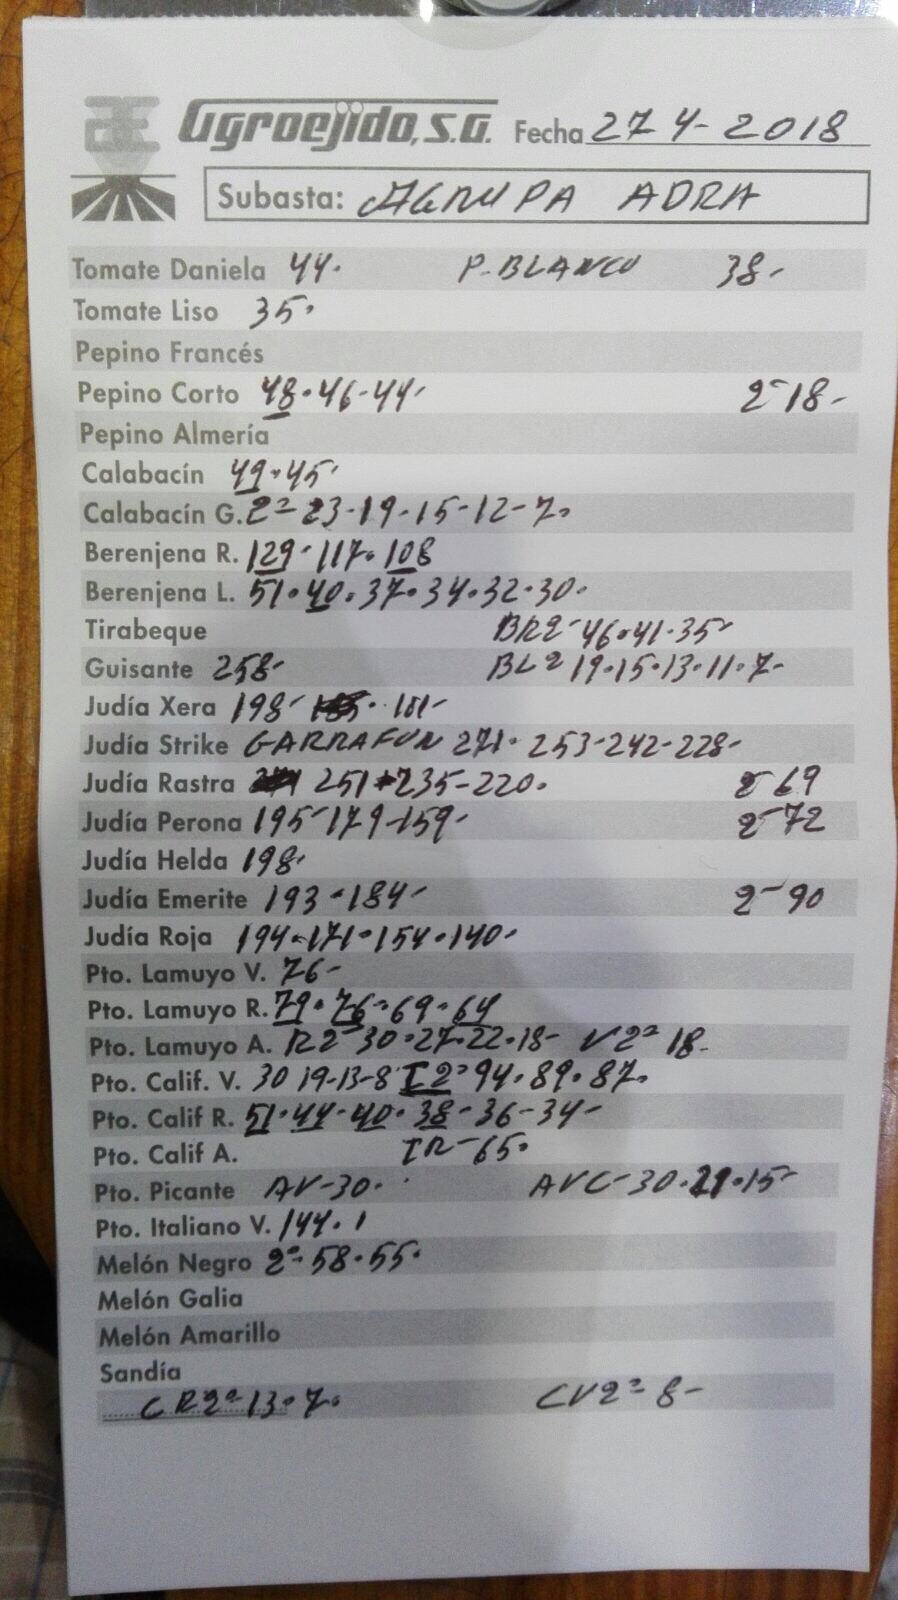 Agroejido, S.A. Fecha 27 4 - 2018
Subasta: AGRUPA ADRA
Tomate Daniela 44. P. BLANCO 38-
Tomate Liso 35.
Pepino Francés
Pepino Corto 48.46-44- 2-18-
Pepino Almería
Calabacín 49.45-
Calabacín G. 2ª 23-19-15-12-7.
Berenjena R. 129-117.108
Berenjena L. 51.40.37.34.32.30.
Tirabeque BR2-46.41.35-
Guisante 258- BL2 19.15.13.11.7-
Judía Xera 198- 181-
Judía Strike GARRAFON 271. 253-242-228-
Judía Rastra 251-235-220. 2-69
Judía Perona 195-179-159- 2-72
Judía Helda 198.
Judía Emerite 193-184- 2-90
Judía Roja 194-171.154.140-
Pto. Lamuyo V. 76-
Pto. Lamuyo R. 79.76-69-64
Pto. Lamuyo A. R2-30.27.22.18- V2ª 18-
Pto. Calif. V. 30 19-13-8 I2-94.89.87.
Pto. Calif R. 51.44-40.38-36-34-
Pto. Calif A. IR-65.
Pto. Picante AV-30. AVC-30.21.15-
Pto. Italiano V. 144.
Melón Negro 2ª-58.55.
Melón Galia
Melón Amarillo
Sandía
CR2ª 13.7. CV2ª 8-